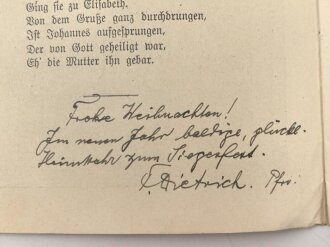 Ging sie zu Elisabeth.
Von dem Gruße ganz durchdrungen,
Ist Johannes aufgesprungen,
Der von Gott geheiligt war,
Eh' die Mutter ihn gebar.
Frohe Weihnachten!
Im neuen Jahr baldige, glückl.
Heimkehr zum Siegesfest.
Dietrich. Pfr.